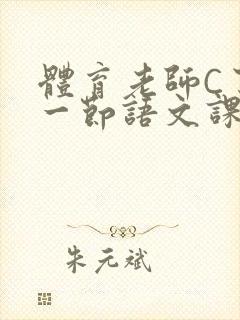 體育老師C
一節語文課
朱元斌